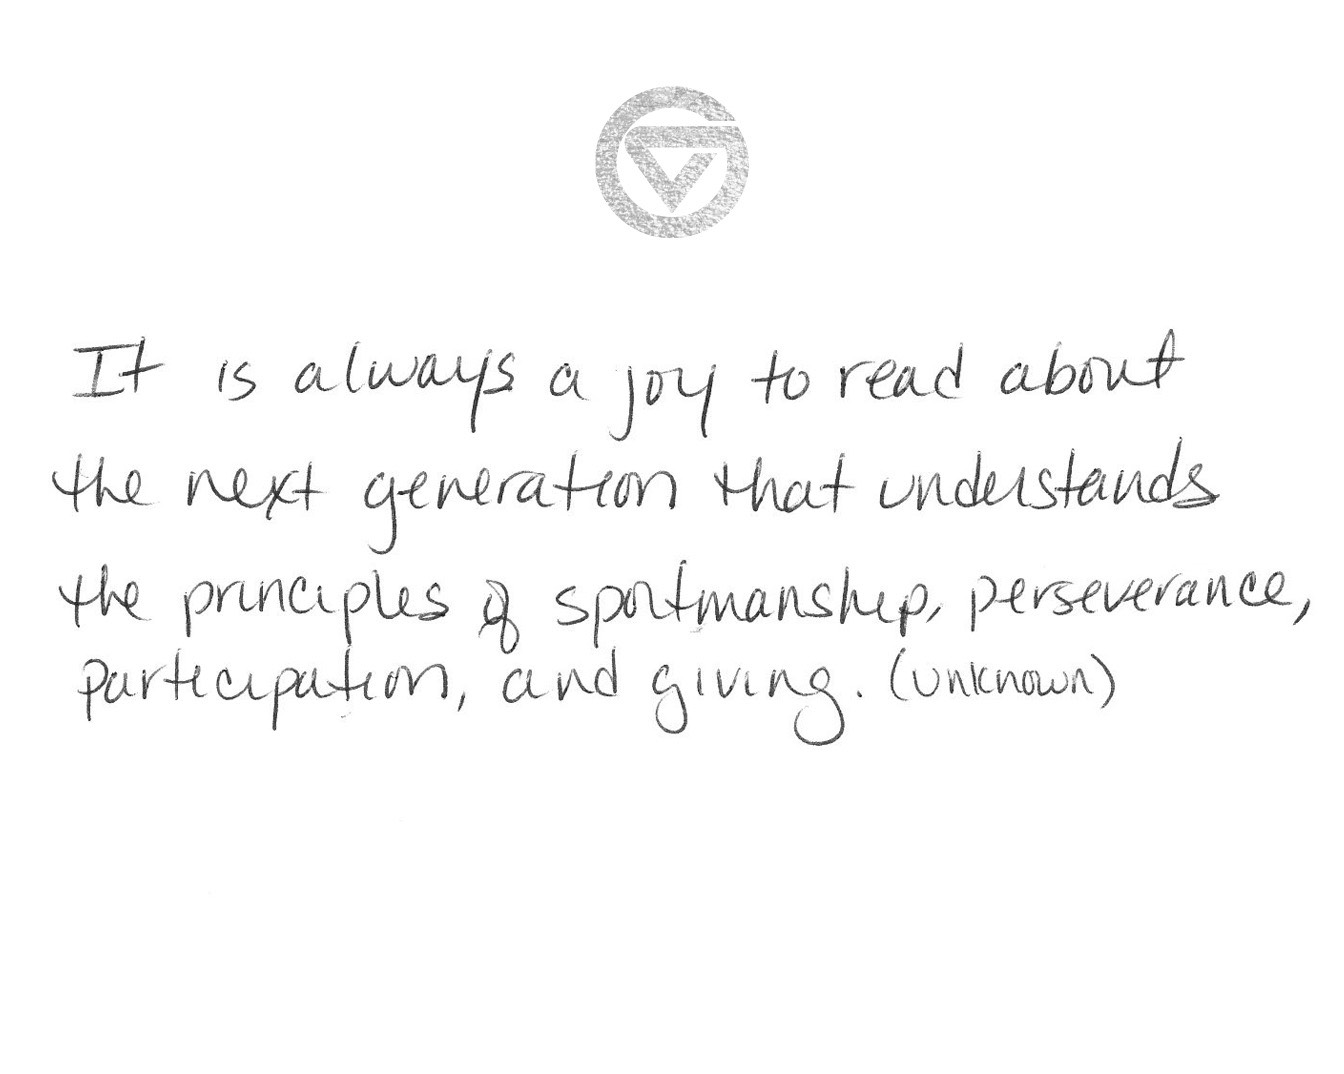 It is always a joy to read about
the next generation that understands
the principles of sportmanship, perseverance,
participation, and giving. (unknown)